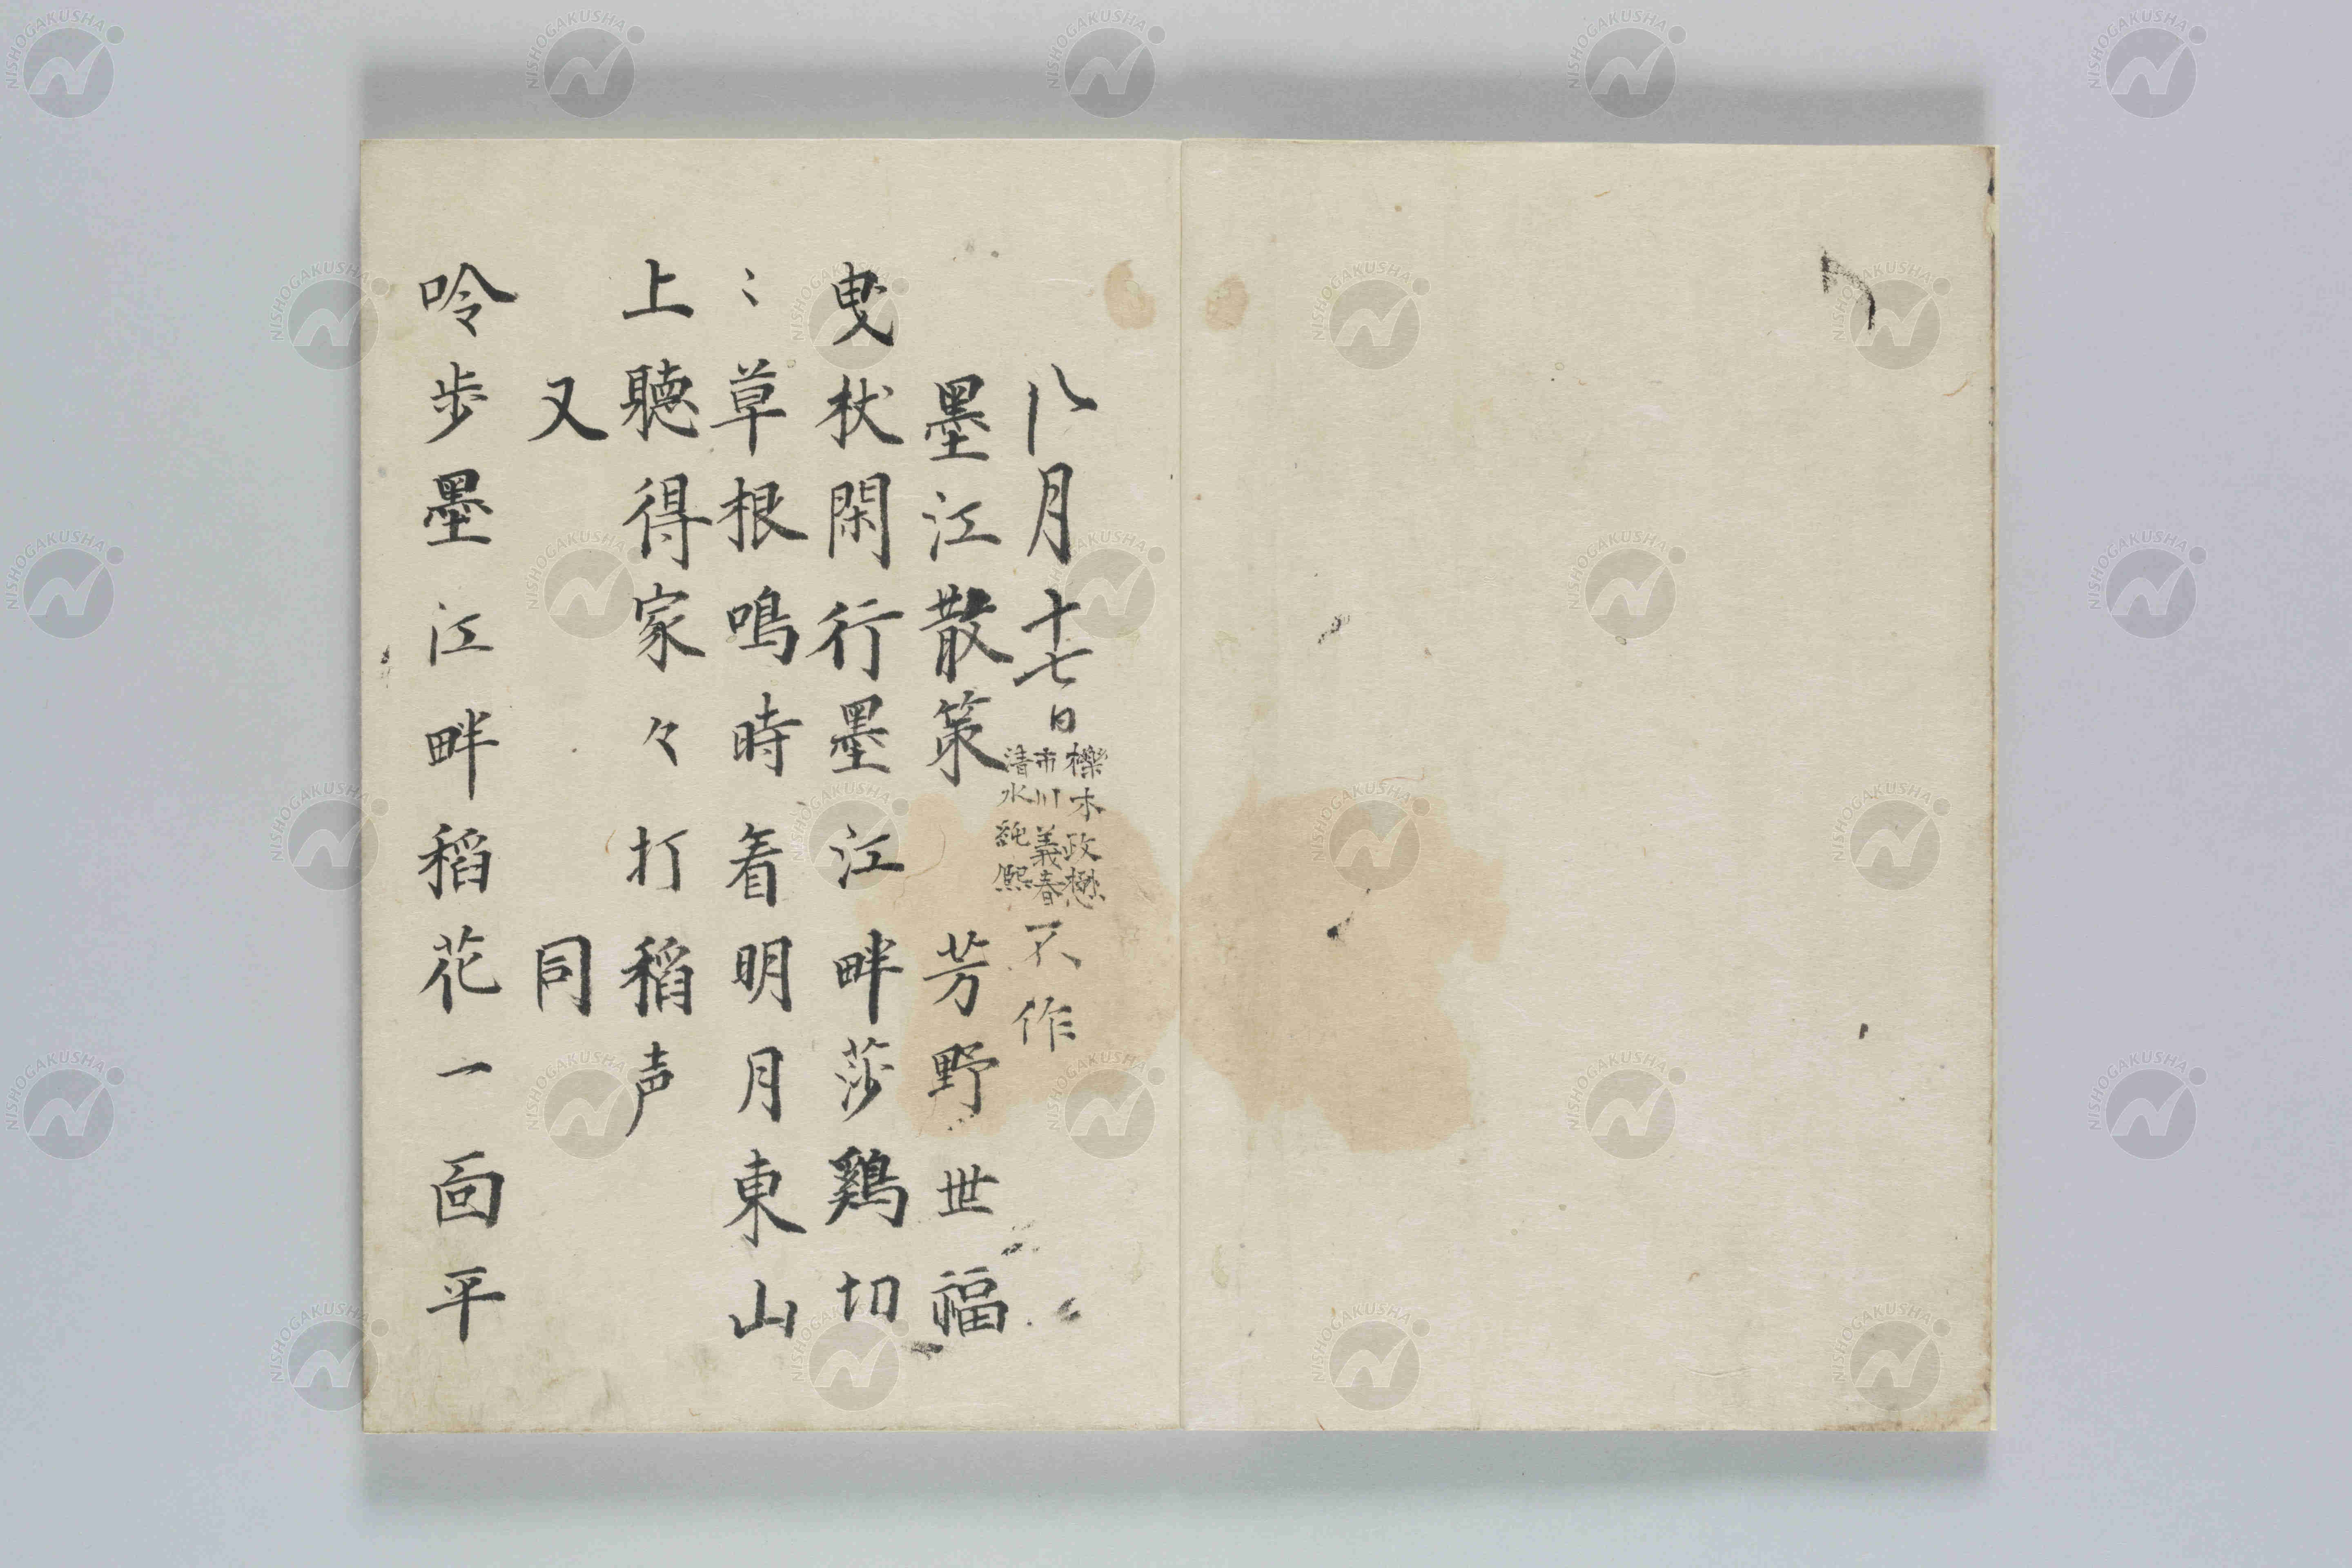 八月十七日 櫟木政懋 市川義春 清水純熙 不作
墨江散策 芳野世福
曳杖閑行墨江畔莎鷄切
〻草根鳴時看明月東山
上聽得家々打稻声
又 同
吟步墨江畔稻花一面平